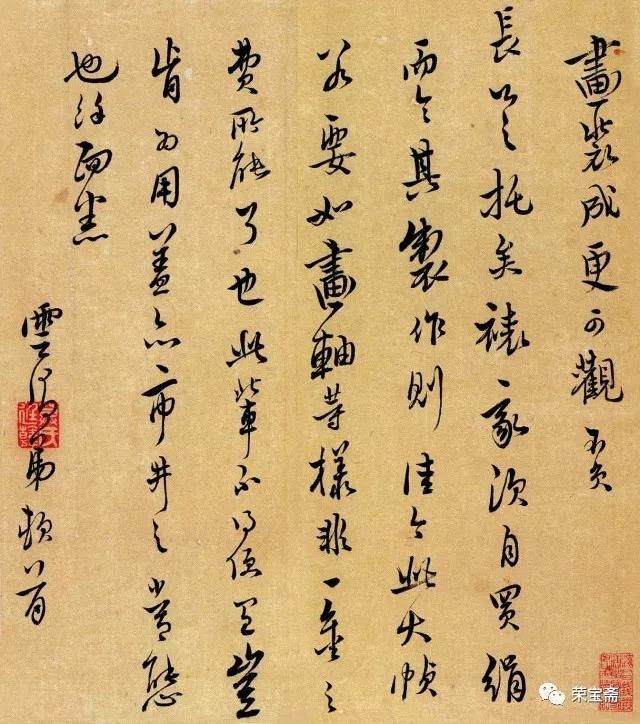 畫裝成更可觀不負
長公之托矣裱家須自買絹
而令其製作則佳今此大幀
若要如畫軸等樣非一金之
費所能了也此輩不得便宜豈
肯為用蓋亦市井之常態
也面悉
雲弟頓首
荣宝斋